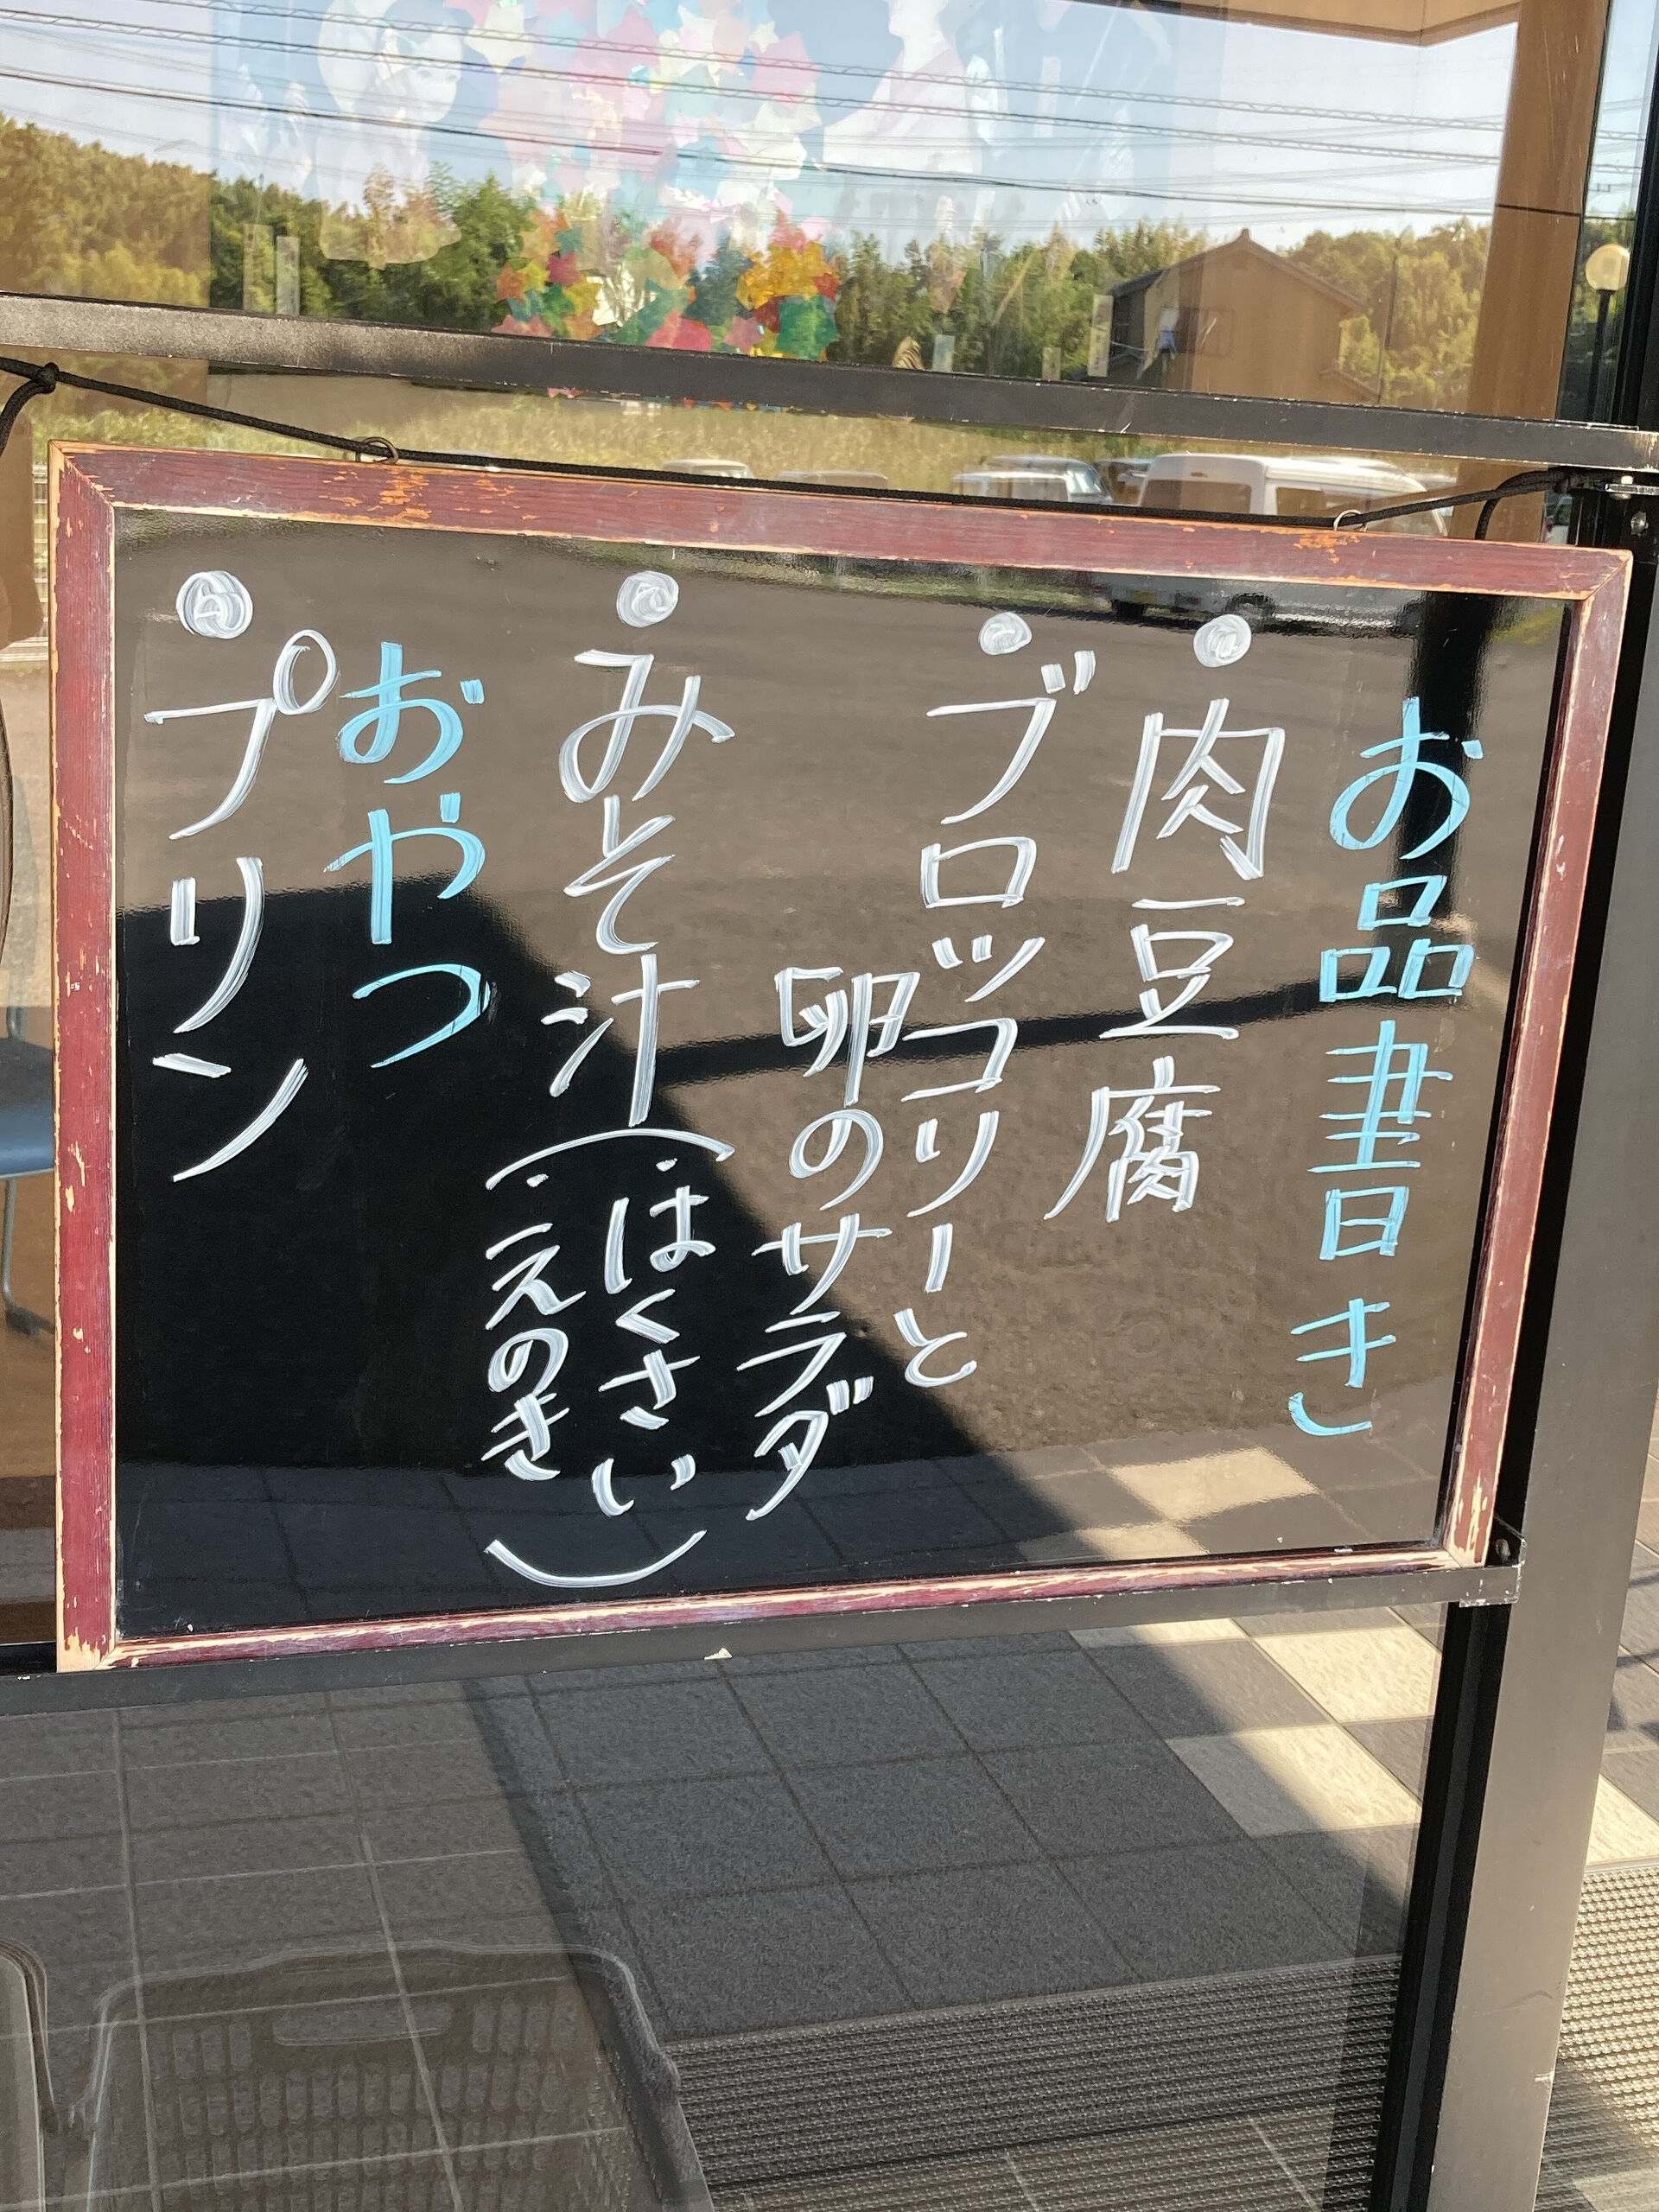 お品書き
●肉豆腐
●ブロッコリーと
卵のサラダ
●みそ汁(・はくさい
・えのき)
おやつ
●プリン